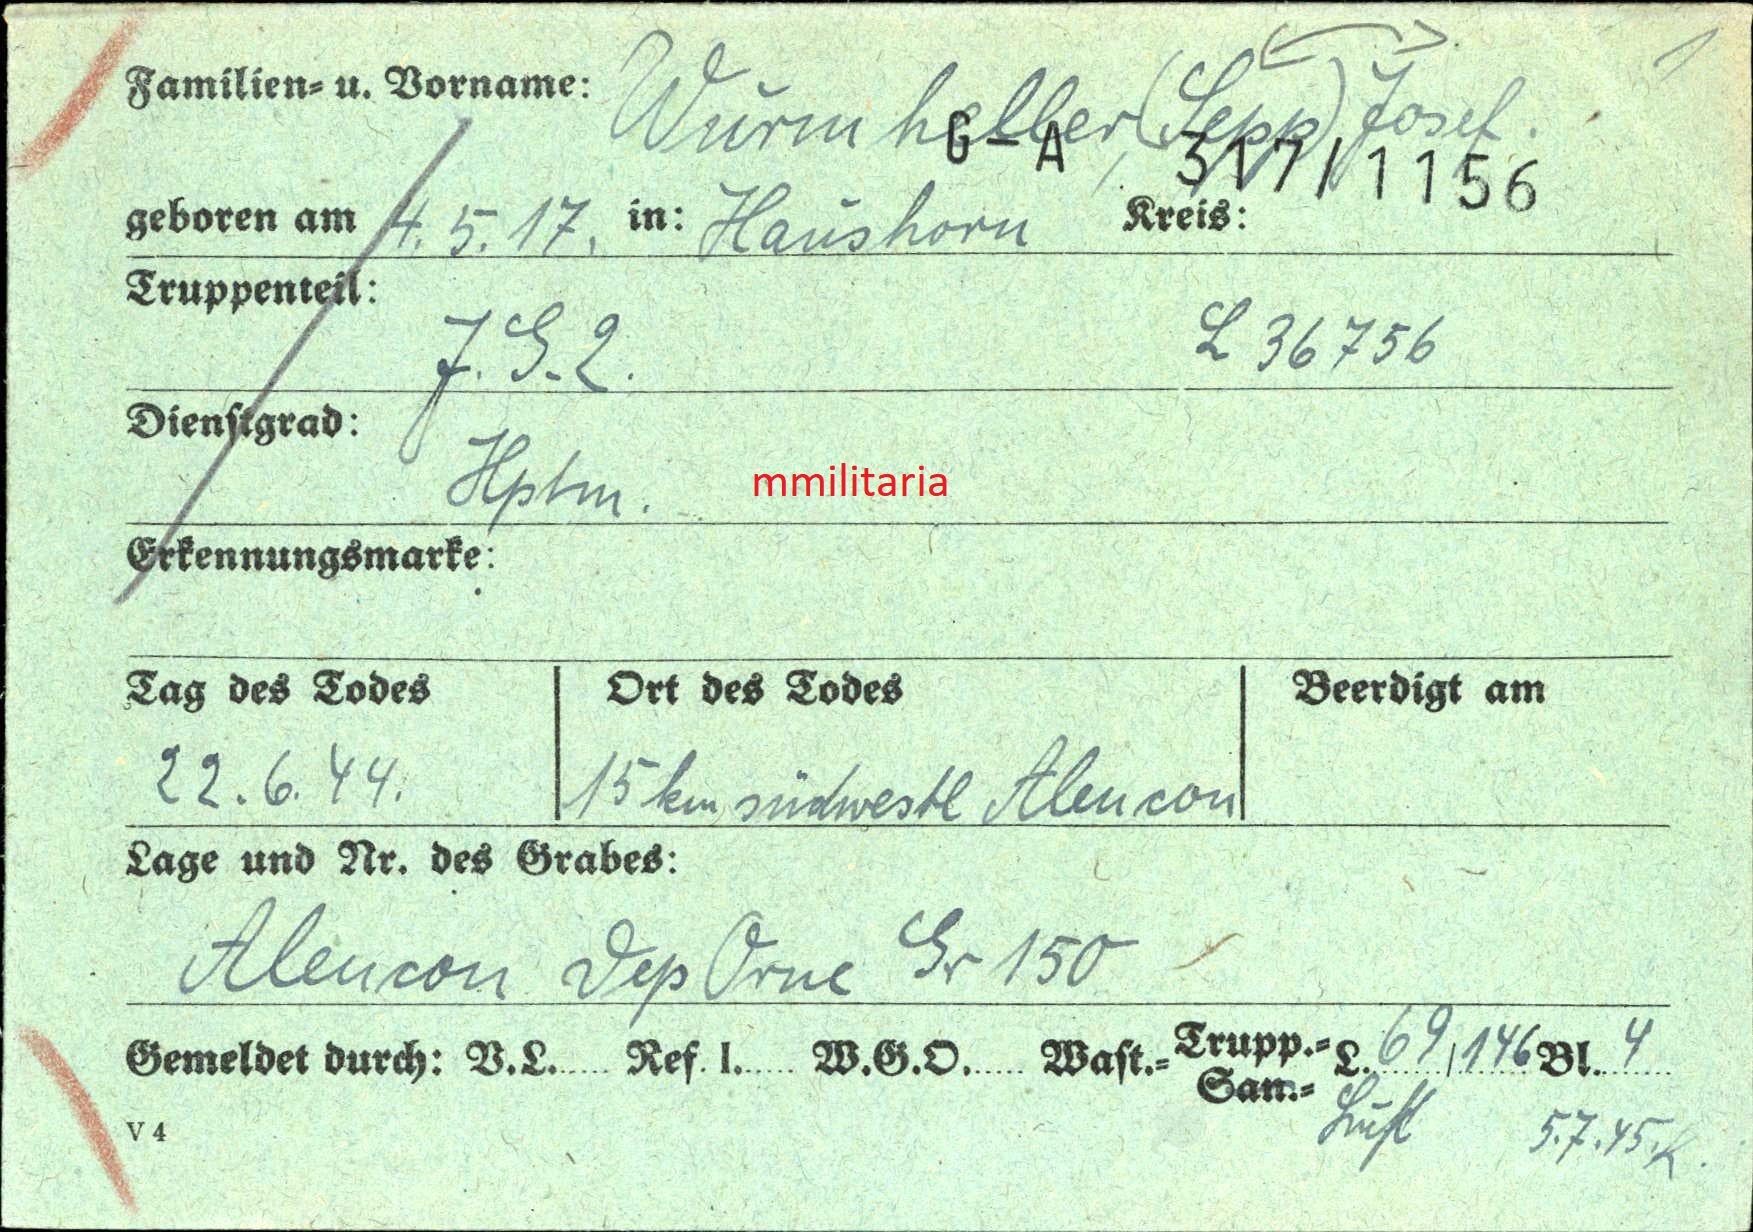 Familien- u. Vorname: Wurmheller (Sepp) Josef.
G-A 317/1156
geboren am 4.5.17. in: Haushorn Kreis:
Truppenteil:
J.G.2. L 36756
Dienstgrad:
Hptm.
mmilitaria
Erkennungsmarke:
Tag des Todes Ort des Todes Beerdigt am
22.6.44. 15 km südwestl Alencon
Lage und Nr. des Grabes:
Alencon Dep Orne Gr 150
Gemeldet durch: V.L...... Ref. I...... W.G.O...... Wast.- Trupp.- L. 69/146 Bl. 4
San.-
Luft 5.7.45.K.
V 4